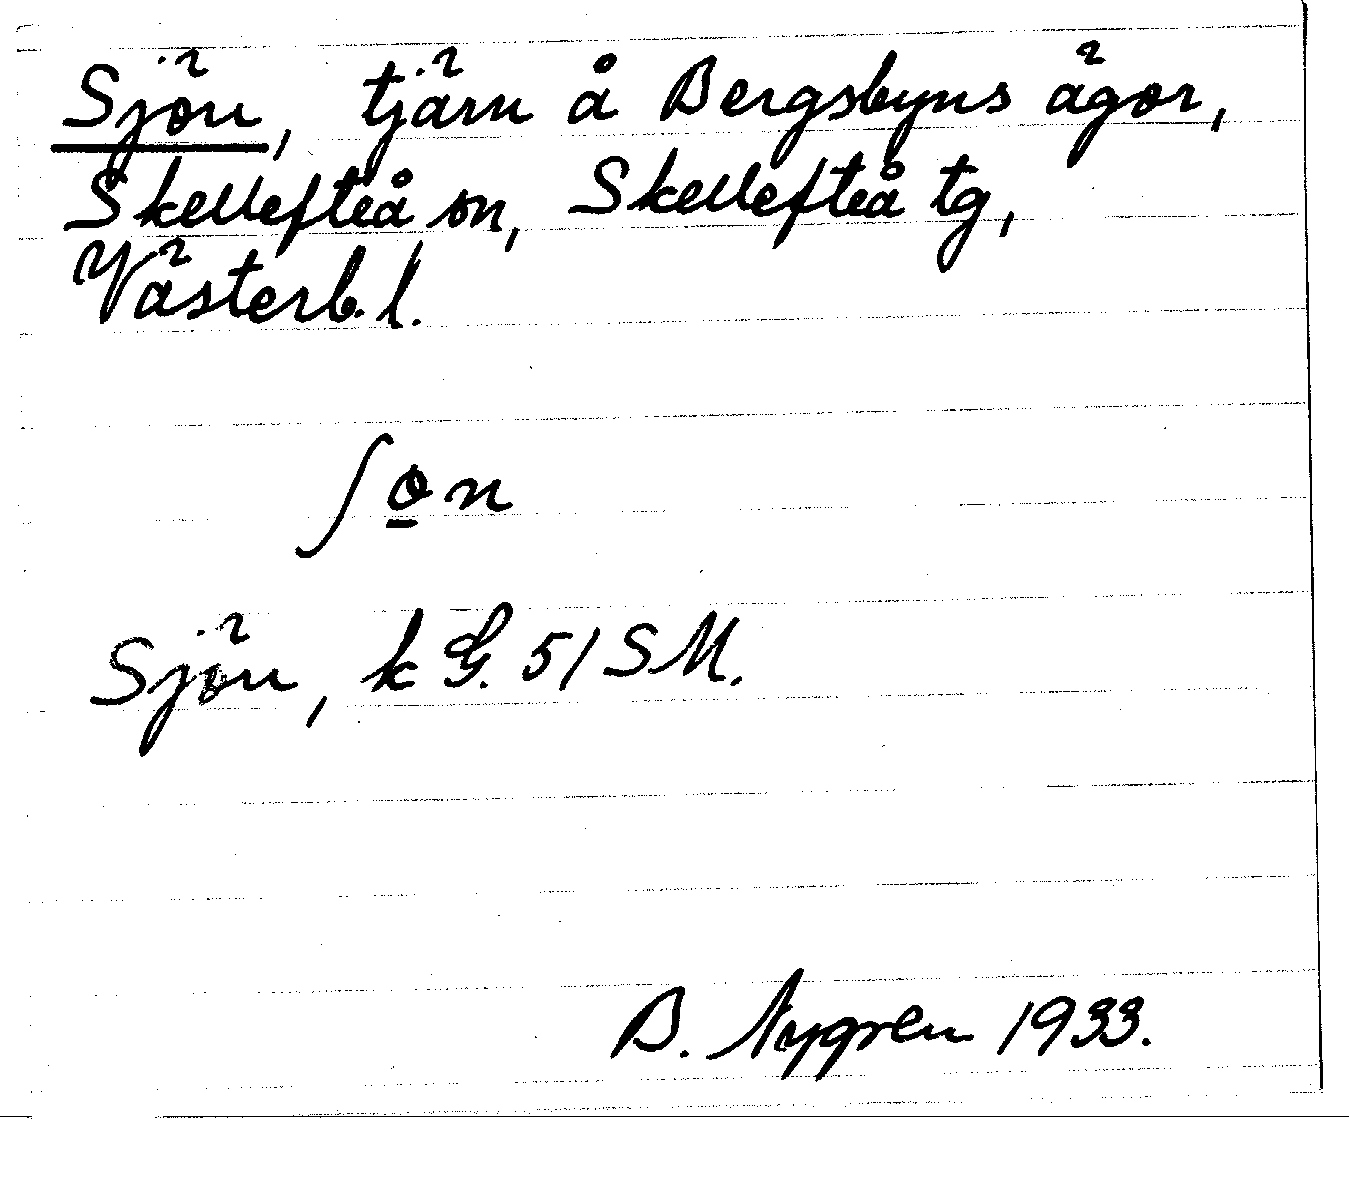 Sjön, tjärn å Bergsbyns ägor,
Skellefteå sn, Skellefteå tg,
Västerb. l.
ʃɵ̲n
Sjön, k G. 51 SM.
B. Nygren 1933.